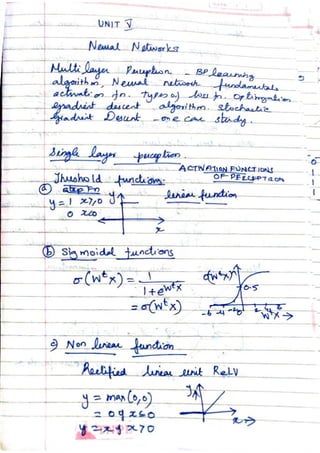 UNIT V
Neural Networks
Multi layer Perceptron - BP learning
algorithm, Neural network fundamentals,
activation fn. Types of loss fn. Optimization
gradient descent algorithm. Stochastic
Gradient Descent - one case study.
Single layer perceptron
ACTIVATION FUNCTIONS
OF PERCEPTRON
Threshold functions:
(a) step Fn
linear function
y = 1 x≥0 y
0 x<0
x
(b) Sigmoidal functions
σ(wᵗx) = 1
1+e^wᵗx
= σ(wᵗx)
σ(wᵗx)
0.5
-6 -4 -2 0 2 4 6
wᵗx →
c) Non linear function
Rectified linear unit ReLV
y = max(0,0)
= 0 if x≤0
y = x if x>0
y
x→